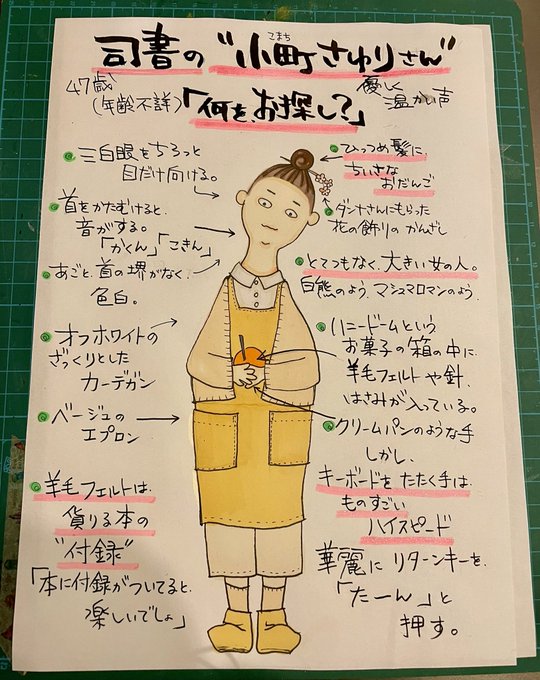 司書の"小町さゆりさん"
こまち
47歳
(年齢不詳)
「何を、お探し?」
優しく
温かい声
三白眼をちろっと
目だけ向ける。
首をかたむけると、
音がする。
「かくん」「こきん」
あごと、首の堺がなく、
色白。
オフホワイトの
ざっくりとした
カーデガン
ベージュの
エプロン
羊毛フェルトは、
貸りる本の
"付録"
「本に付録がついてると、
楽しいでしょ」
ひっつめ髪に、
ちいさな
おだんご
ダンナさんにもらった
花の飾りのかんざし
とてつもなく、大きい女の人。
白熊のよう、マシュマロマンのよう、
ハニードームという
お菓子の箱の中に、
羊毛フェルトや針、
はさみが入っている。
クリームパンのような手
しかし、
キーボードをたたく手は、
ものすごい
ハイスピード
華麗にリターンキーを、
「たーん」と
押す。